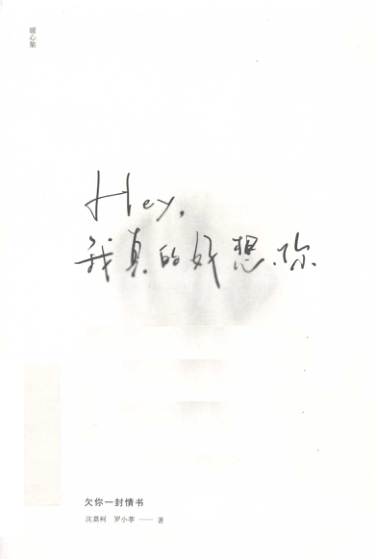 暖心集
Hey,
我真的好想你
欠你一封情书
沈嘉柯 罗小葶——著